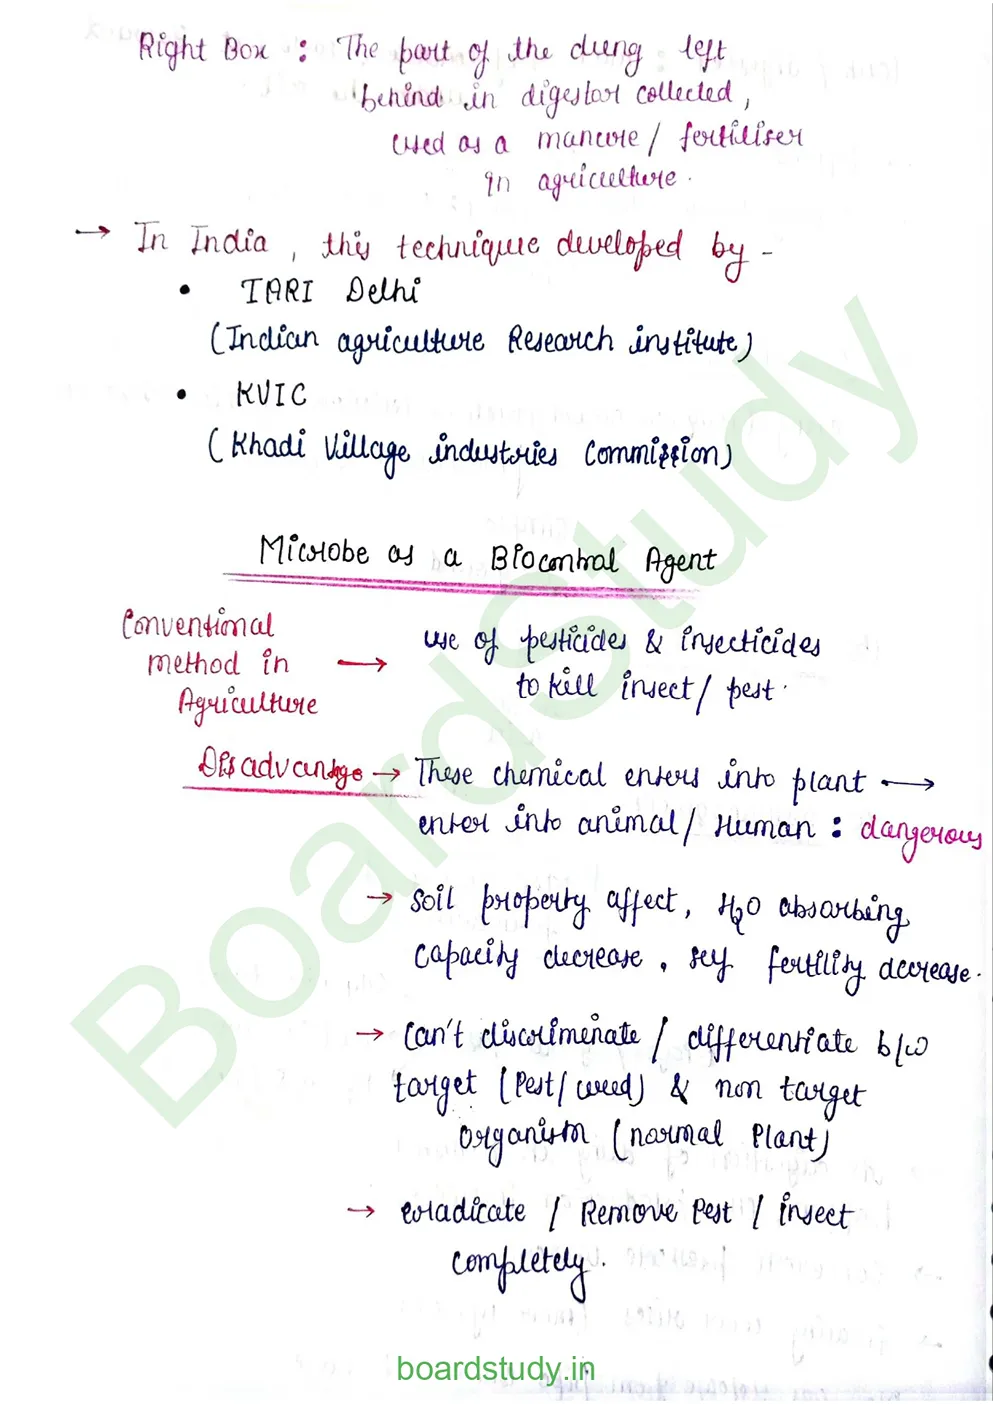 Right Box : The part of the dung left
behind in digestor collected,
used as a manure / fertiliser
in agriculture.
→ In India, this technique developed by -
• IARI Delhi
(Indian agriculture Research institute)
• KVIC
(Khadi Village industries Commission)
Microbe as a Biocontral Agent
Conventional
method in
Agriculture
→ use of pesticides & insecticides
to kill insect / pest.
Disadvantage → These chemical enters into plant →
enter into animal / Human : dangerous
→ Soil property affect, H2O absorbing
capacity decrease, fertility decrease.
→ Can't discrimenate / differentiate b/w
target (Pest / weed) & non target
organism (normal Plant)
→ eradicate / Remove Pest / insect
completely.
BoardStudy
boardstudy.in